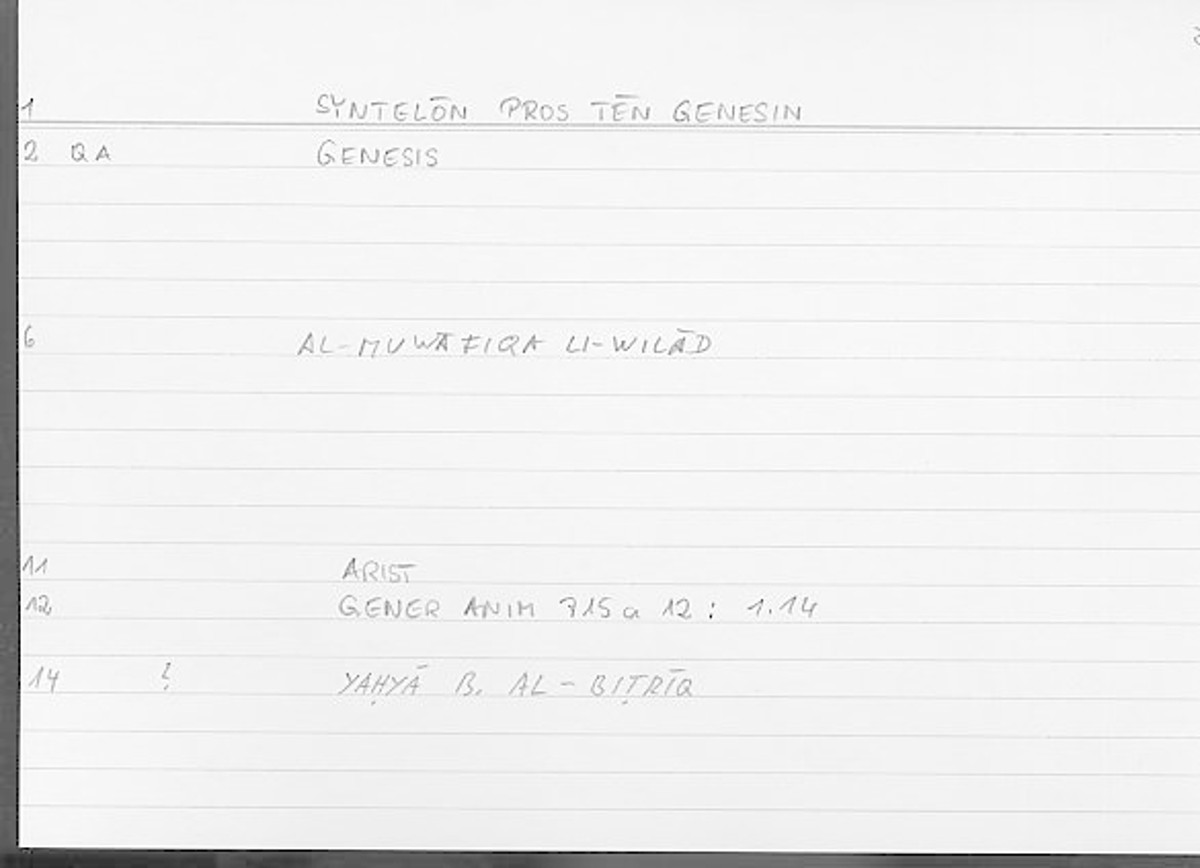 1 SYNTELŌN PROS TĒN GENESIN
2 QA GENESIS
6 AL-MUWĀFIQA LI-WILĀD
11 ARIST
12 GENER ANIM 715 a 12 : 1.14
14 ? YAḤYĀ B. AL-BIṬRĪQ